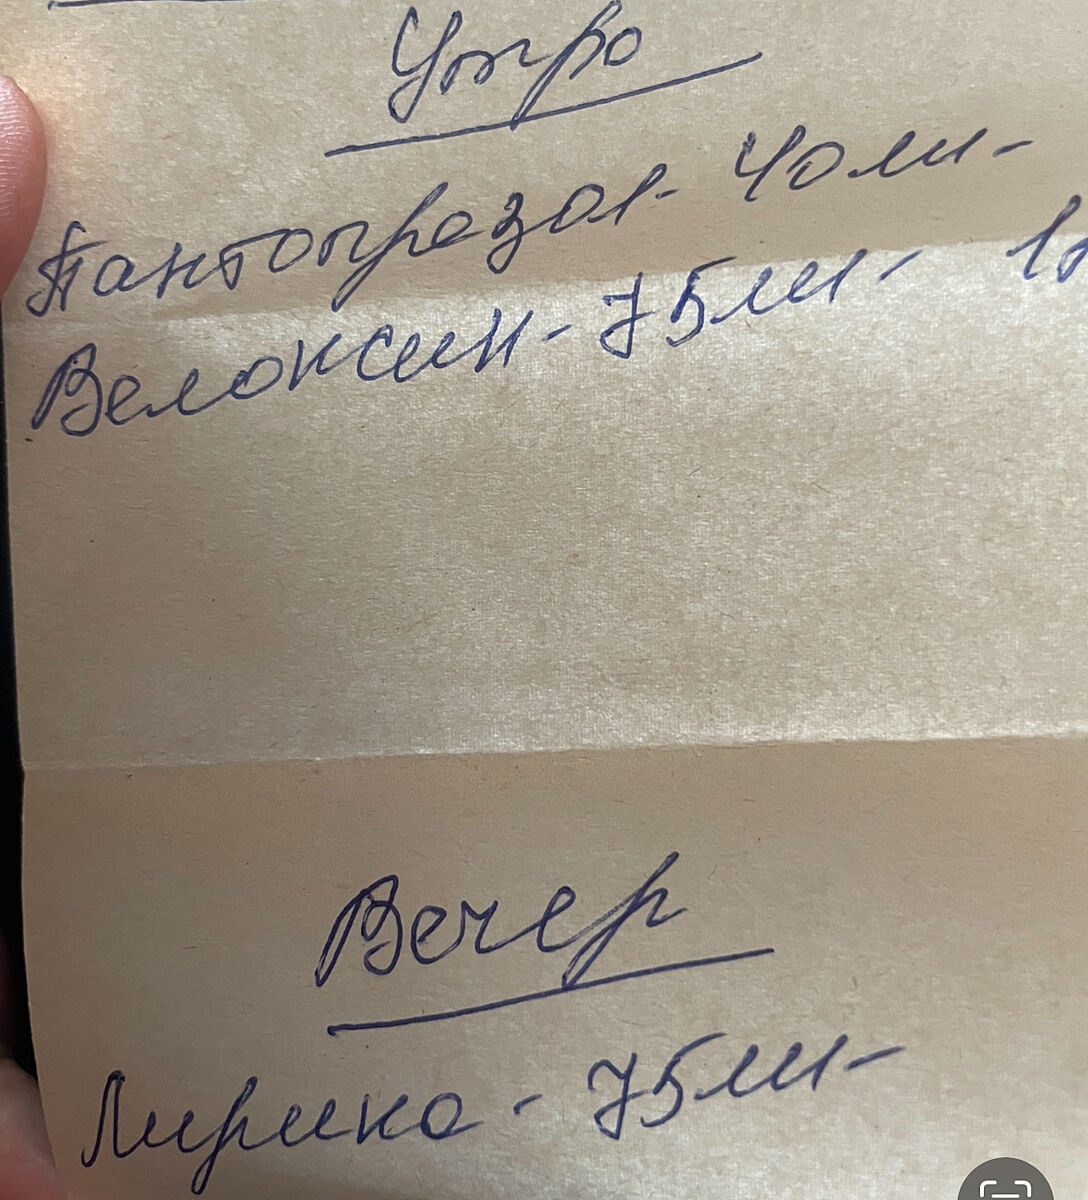 Утро
Пантопразол- 40 мг-
Велоксин- 75мг- 1
Вечер
Лирика - 75мг-